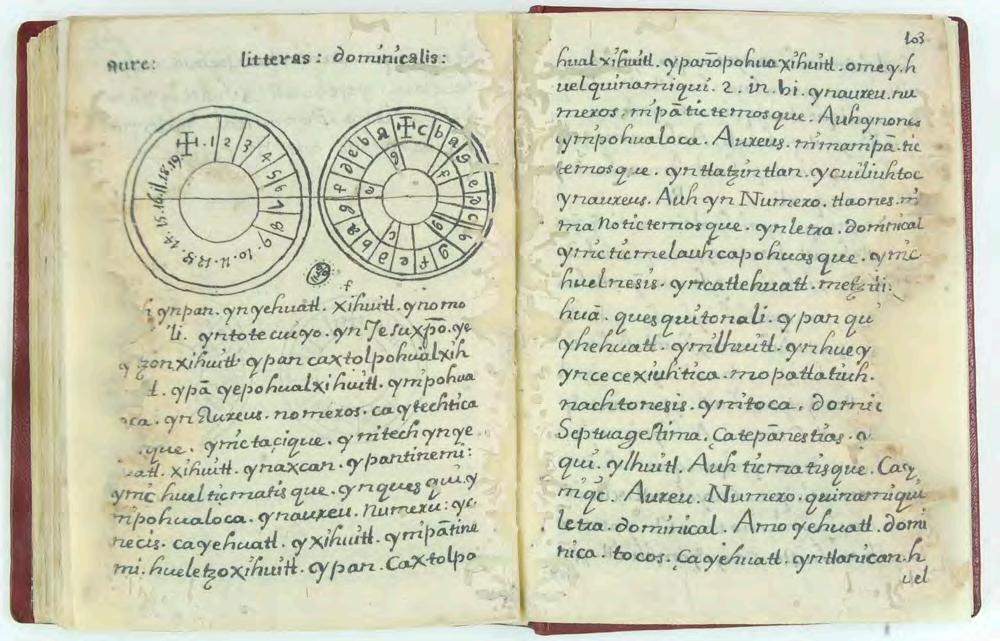 aure: litteras: dominicalis:
1. 1 2 3 4 5 6 7 8 9 10. 11. 12. 13. 14. 15. 16. 17. 18. 19
h ynpan. ynyehuatl. xihuitl. ynomo
li. yntotecuiyo. yn Jesuxpõ. ye
tzonxihuitl ypan caxtolpohualxih
tl. ypã yepohualxihuitl. ympohua
oca. yn Aureus. nomeros. ca ytechtica
que. ymictacique. ymitech ynye
atl. xihuitl. ynaxcan. ypantinemi:
ymic huelticmatisque. ynquesqui. y
mpohualoca. ynaureu. Numeru: yc
necis. cayehuatl. yxihuitl. ympãtine
mi. hueletzoxihuitl. ypan. Caxtolpo
103
hualxihuitl. ypañopohuaxihuitl. omey. h
uelquinamiqui. 2. in. bi. ynaureu. nu
meros. mpãtictemosque. Auhynones
ympohualoca. Aureus. mmampã. tic
temosque. yntlatzintlan. ycuiliuhtoc
ynaureus. Auh yn Numero. tlaones. m
ma notictemosque. ynletra. dominical
ymicticmelauhcapohuasque. ymic
huelnesis. yncatlehuatl. metztli.
huã. quesquitonali. ypan qui
yhehuatl. ymilhuitl. ynhuey
yncecexiuhtica. mopatlatiuh.
nachtonesis. ymitoca. domic
Septuagestima. Çatepãnestias. y
qui. ylhuitl. Auh ticmatisque. Cay
miqc. Aureu. Numero. quinamiqui
letra. dominical. Amo yehuatl. domi
nica. tocos. Ca yehuatl. yntlanican. h
uel